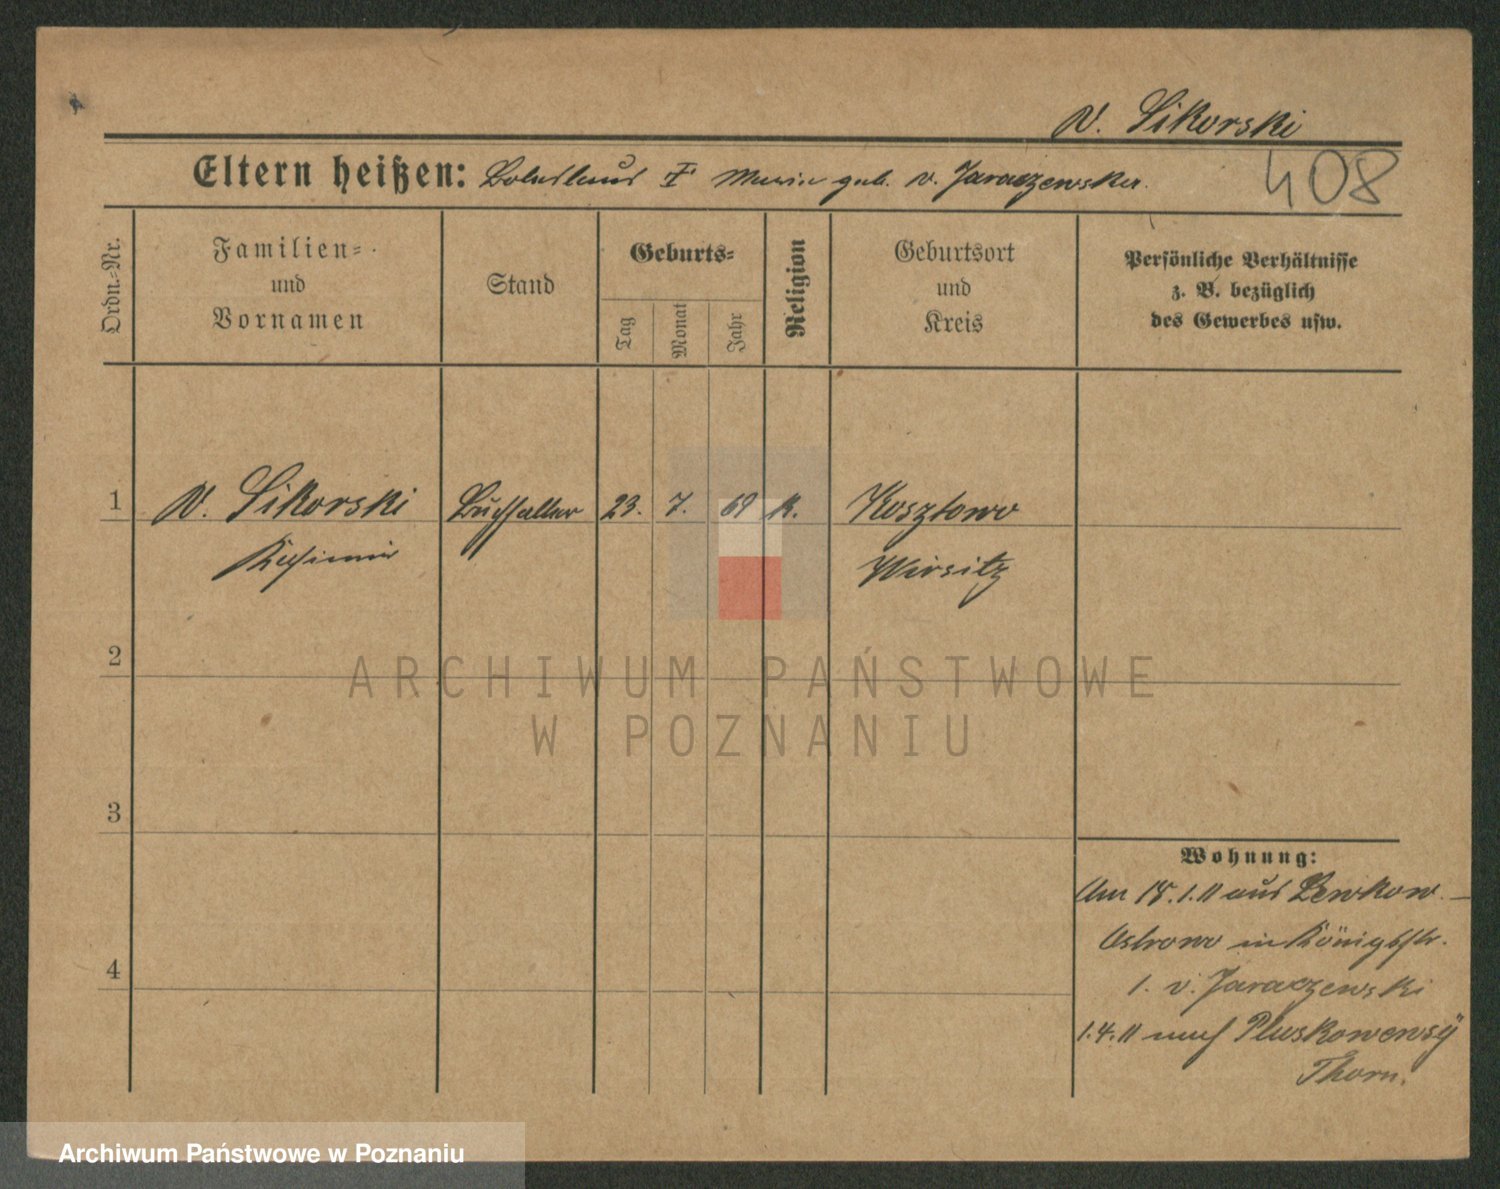 v. Sikorski
Eltern heißen: Boleslaus † Maria geb. v. Jaraczewska.
408
Ordn.-Nr.
Familien-
und
Vornamen
Stand
Geburts-
Tag
Monat
Jahr
Religion
Geburtsort
und
Kreis
Persönliche Verhältnisse
z. B. bezüglich
des Gewerbes usw.
1 v. Sikorski Buchhalter 23. 7. 69 k. Kosztowo
Kasimir Wirsitz
2
3
4
Wohnung:
Am 18.1.11 aus Lewkow.-
Ostrowo in Königstr.
1. v. Jaraczewski
1.4.11 nach Pluskowensÿ
Thorn.
ARCHIWUM PAŃSTWOWE
W POZNANIU
Archiwum Państwowe w Poznaniu